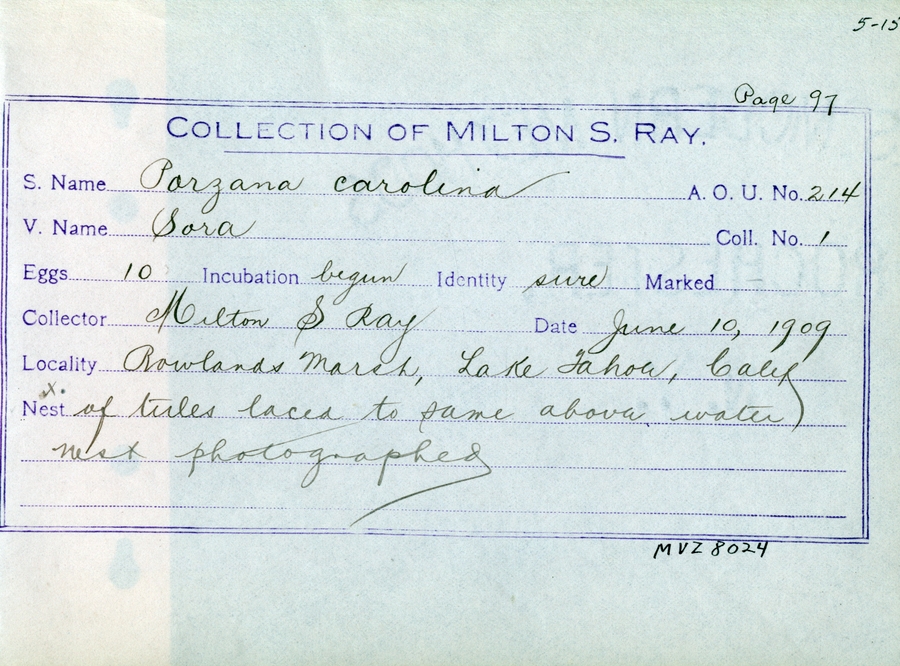 5-15
Page 97
COLLECTION OF MILTON S. RAY.
S. Name Porzana carolina A. O. U. No. 214
V. Name Sora Coll. No. 1
Eggs 10 Incubation begun Identity sure Marked
Collector Milton S Ray Date June 10, 1909
Locality Rowlands Marsh, Lake Tahoe, Calif
x.
Nest of tules laced to same above water
nest photographed
MVZ 8024